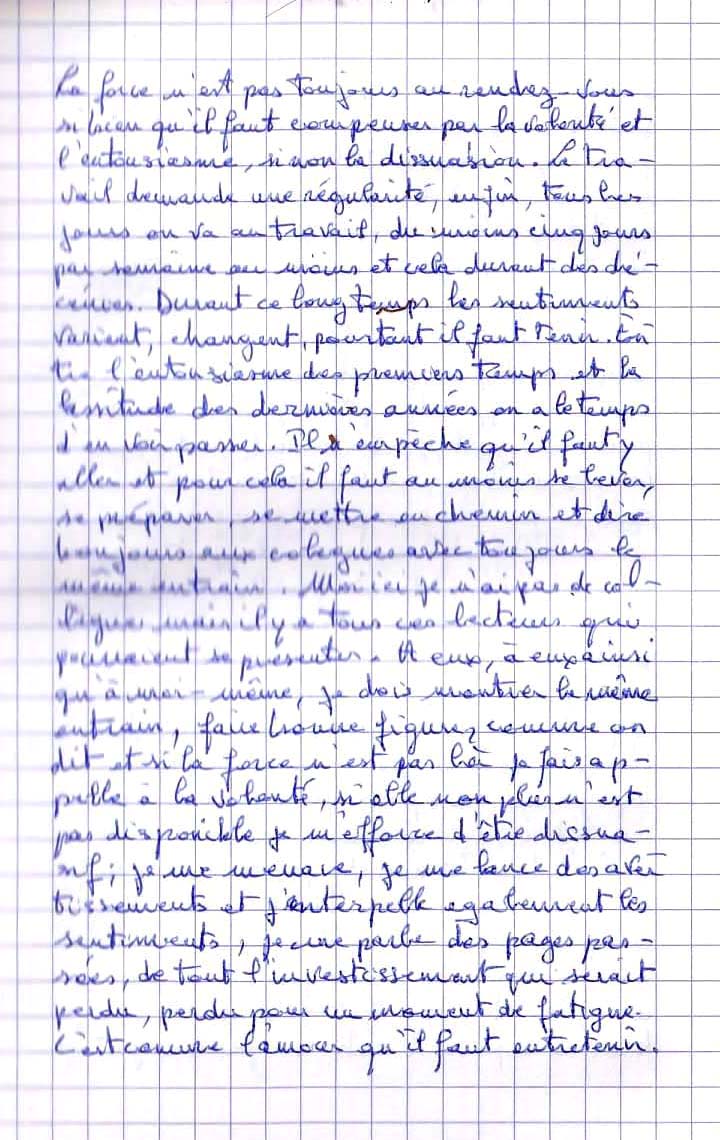 La force n'est pas toujours au rendez-vous
si bien qu'il faut compenser par la volonté et
l'entousiasme, sinon la dissuasion. Le tra-
vail demande une régularité, enfin, tous les
jours on va au travail, du moins cinq jours
par semaine au moins et cela durant des dé-
cennies. Durant ce long temps les sentiments
varient, changent, pourtant il faut tenir. En
tre l'entousiasme des premiers temps et la
lassitude des dernières années on a le temps
d'en voir passer. Il n'empèche qu'il faut y
aller et pour cela il faut au moins se lever,
se préparer, se mettre en chemin et dire
bonjours aux colegues avec toujours le
même entrain. Moi ici je n'ai pas de col-
lègues mais il y a tous ces lecteurs qui
pourraient se présenter. A eux, à eux ainsi
qu'à moi-même, je dois montrer le même
entrain, faire bonne figure, comme on
dit et si la force n'est pas là je fais ap-
pelle à la volonté, si elle non plus n'est
pas disponible je m'efforce d'être dissua-
sif; je me menace, je me lance des aver
tissements et j'interpelle egalement les
sentiments, je me parle des pages pas-
sées, de tout l'investissement qui serait
perdu, perdu pour un moment de fatigue.
C'est comme l'amour qu'il faut entretenir.